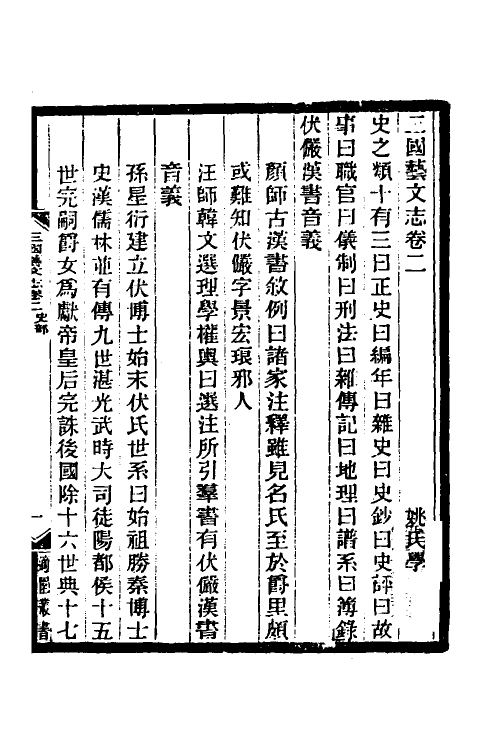 三國藝文志卷二
姚氏學
史之類十有三曰正史曰編年曰雜史曰史鈔曰史評曰故
事曰職官曰儀制曰刑法曰雜傳記曰地理曰譜系曰簿錄
伏儼漢書音義
顏師古漢書敘例曰諸家注釋雖見名氏至於爵里頗
或難知伏儼字景宏琅邪人
汪師韓文選理學權輿曰選注所引羣書有伏儼漢書
音義
孫星衍建立伏博士始末伏氏世系曰始祖勝秦博士
史漢儒林並有傳九世湛光武時大司徒陽都侯十五
世完嗣爵女爲獻帝皇后完誅後國除十六世典十七
三國藝文志卷二 史部
一
叢書